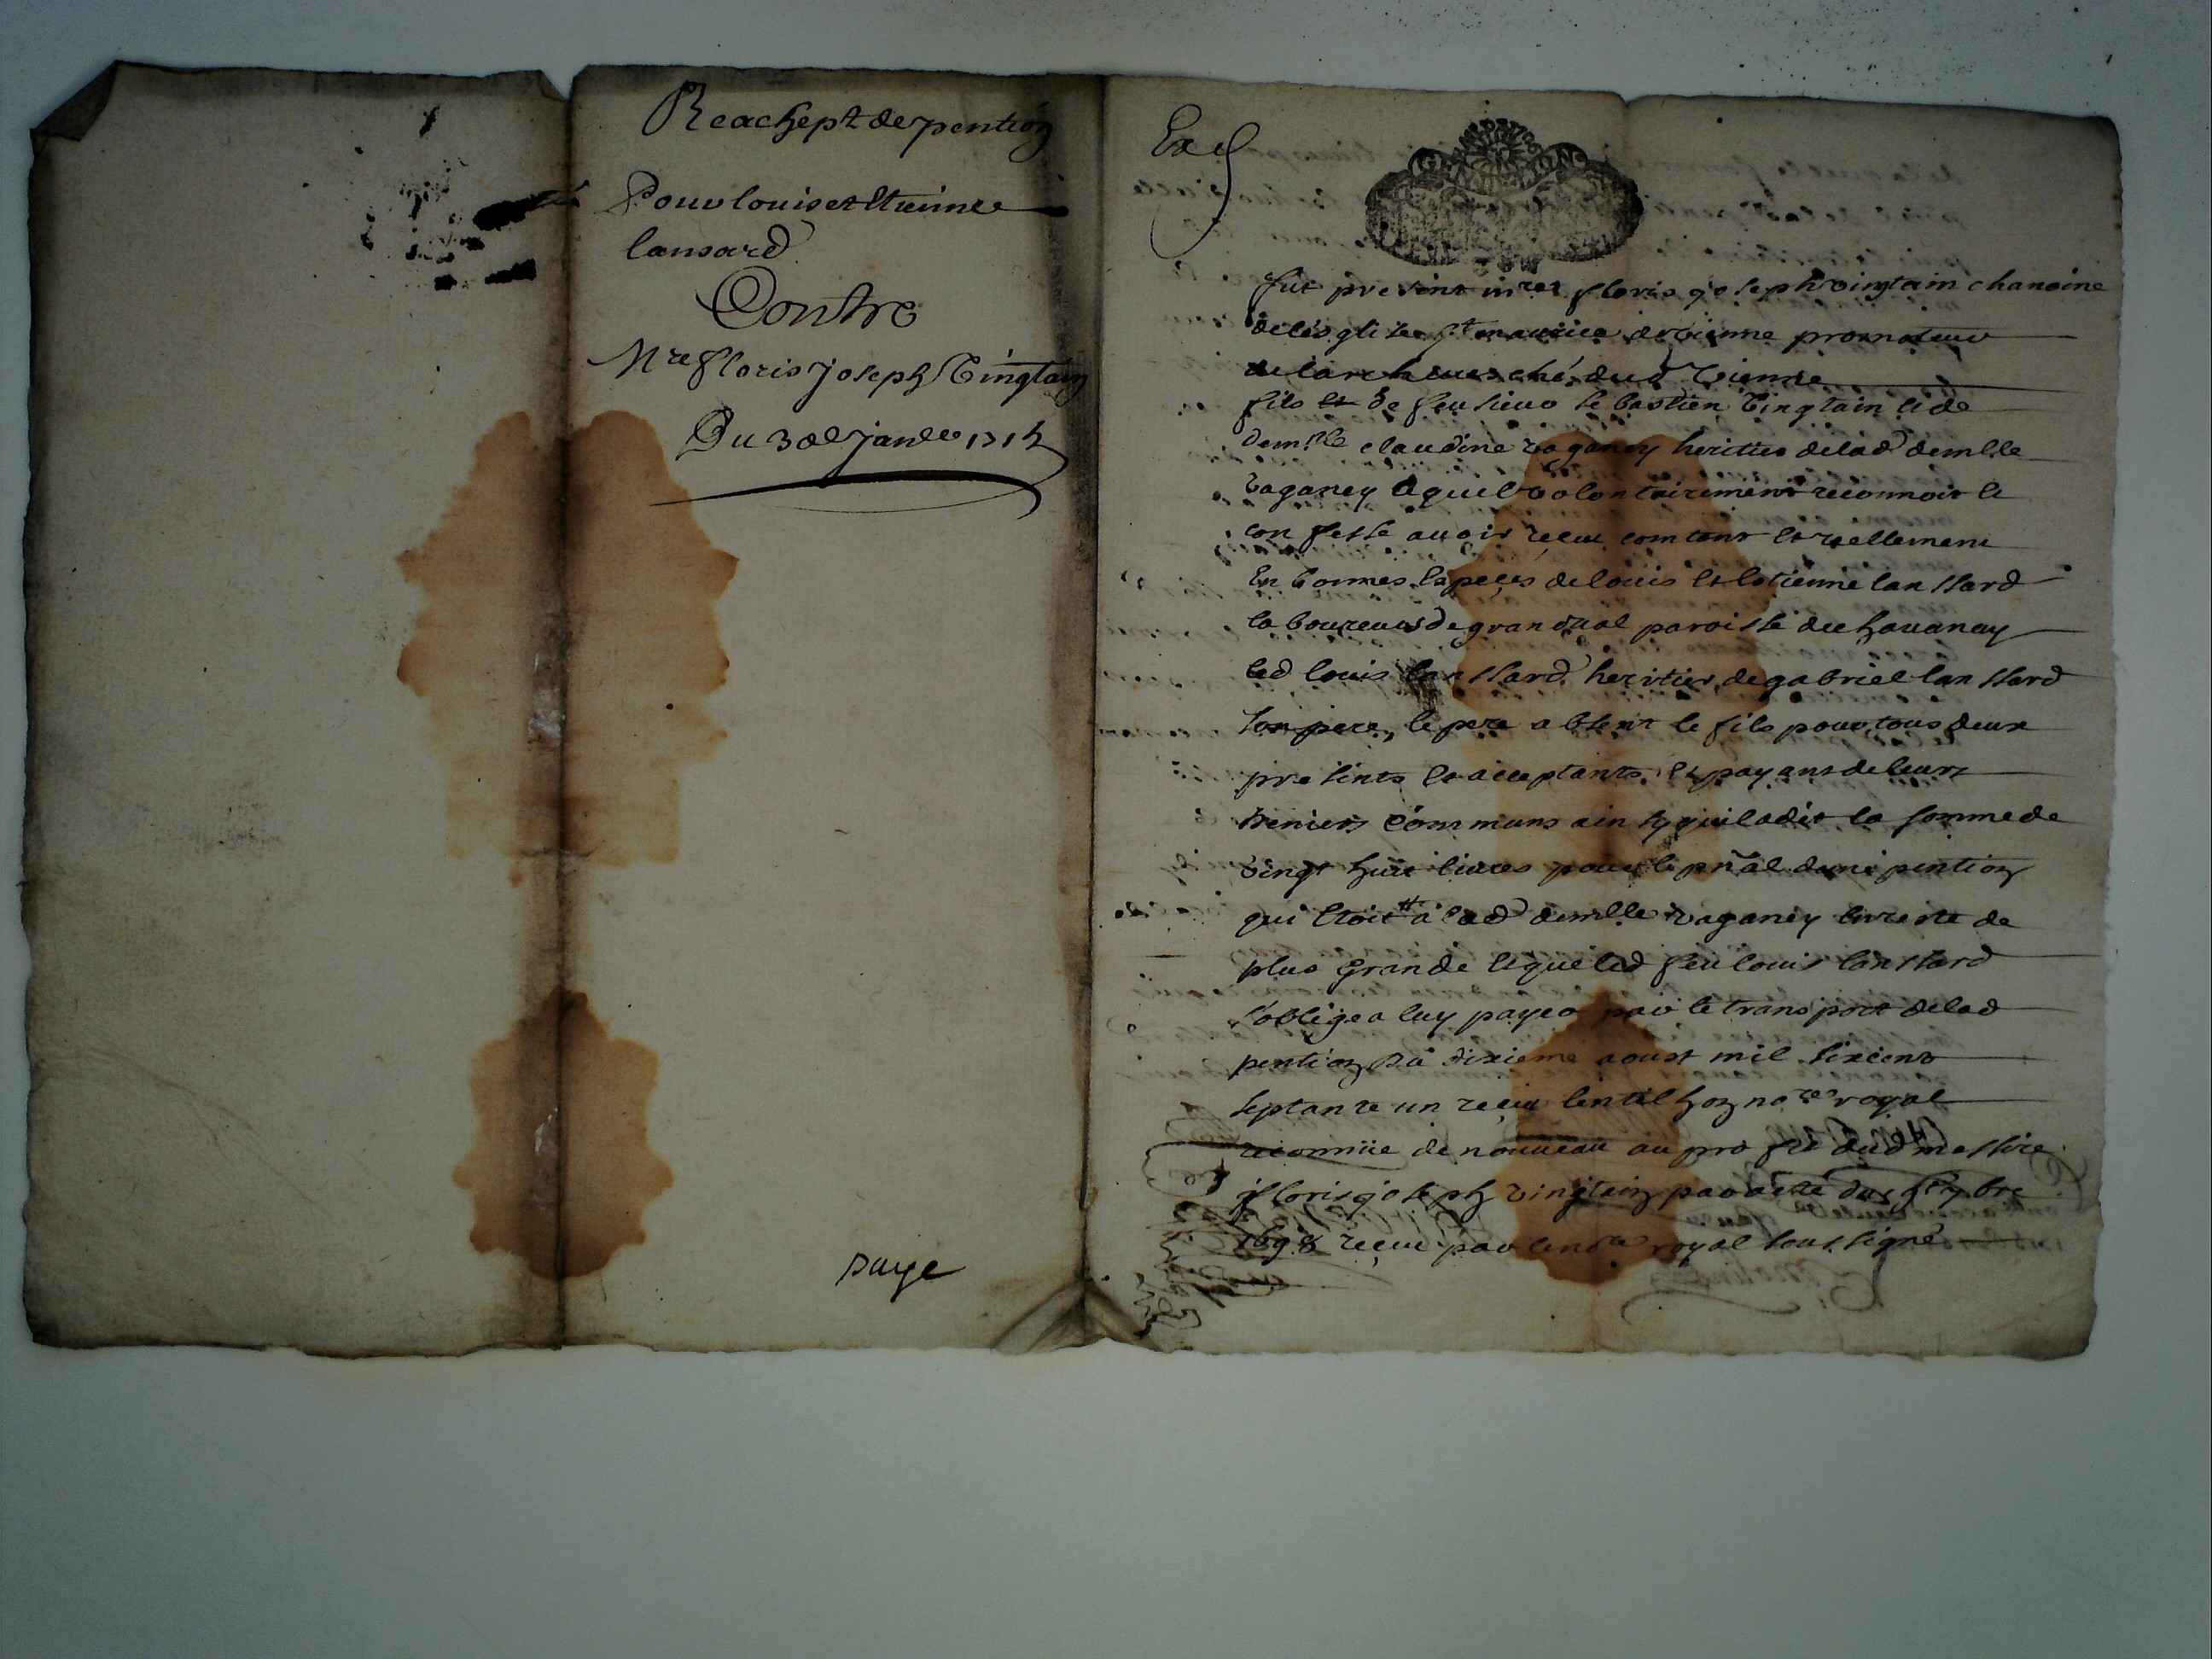 Reachept de pention
Pour louis et Etienne
lansard
Contre
Mre floris joseph Vingtain
Du 3oe janver
paye
Ex
fut present mre floris joseph vingtain chanoine
de lesglise st maurice de vienne promoteur
de larcheuesché dud Vienne
fils et de feu sieur sebastien Vingtain et de
demlle claudine vaganey herittier de lad demlle
vaganey Lequel volontairement reconnoit et
confesse auoir reçeu comtant et reellement
En bonnes Espeçes de louis et etienne lanssard
laboureurs de grandual paroisse de
led louis lanssard heritier de gabriel lanssard
son pere, le pere absent le fils pour tous deux
presents et acceptants et payants de leurs
deniers communs ainsy quil a dit la somme de
vingt huit liures pour le pñal dune pention
qui Etoit a lad demlle vaganey de
plus grande et que led feu louis lanssard
sobligea luy payer par le transport de lad
pention du dixieme aoust mil sixcent
septante un reçeu gentilhoz nore royal
reconnüe de nouueau au proffit dud messire
floris joseph vingtain par acte du bre
1698 reçeu par le nore royal soussigné